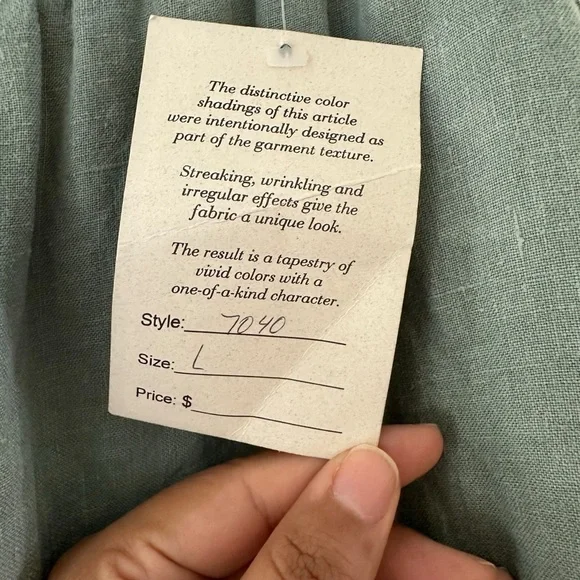 The distinctive color
shadings of this article
were intentionally designed as
part of the garment texture.
Streaking, wrinkling and
irregular effects give the
fabric a unique look.
The result is a tapestry of
vivid colors with a
one-of-a-kind character.
Style: 7040
Size: L
Price: $